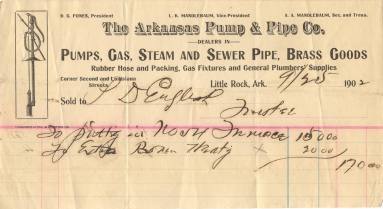 D. G. FONES, President L. B. MANDLEBAUM, Vice-President S. A. MANDLEBAUM, Sec. and Treas.
The Arkansas Pump & Pipe Co.
DEALERS IN
PUMPS, GAS, STEAM AND SEWER PIPE, BRASS GOODS
Rubber Hose and Packing, Gas Fixtures and General Plumbers' Supplies
Corner Second and Louisiana Streets
Little Rock, Ark. 9/25 1902
Sold to J D English
Trustee
To putting in No 04 Furnace 150 00
To Extra 20 00
170 00